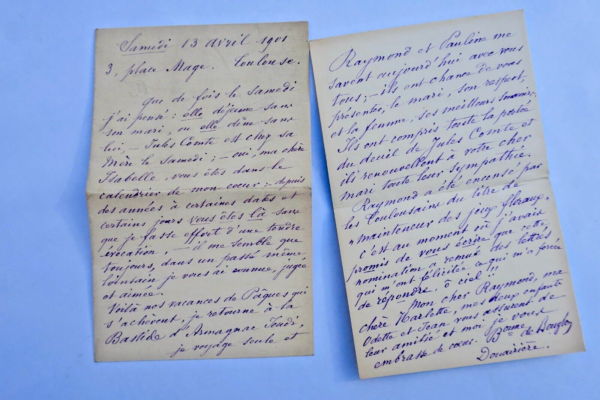 Samedi 13 avril 1901
3, place Mage. Toulouse.
Que de fois le Samedi
j'ai pensé : elle déjeune sans
son mari, ou elle dîne sans
lui, – Jules Comte est chez sa
Mère le Samedi ; – oui, ma chère
Isabelle, vous êtes dans le
calendrier de mon coeur ; depuis
des années à certaines dates et
certains jours vous êtes là sans
que je fasse effort d'une tendre
évocation, – il me semble que
toujours, dans un passé même
lointain je vous ai connue, jugée
et aimée.
Voilà nos vacances de Pâques qui
s'achèvent, je retourne à la
Bastide d'Armagnac Jeudi,
je voyage seule et
Raymond et Pauline me
savent aujourd'hui avec vous
tous ; – ils ont chance de vous
présenter, le mari, son respect,
et la femme, ses meilleurs souvenirs,
Ils ont compris toute la portée
du deuil de Jules Comte et
ils renouvellent à votre cher
mari toute leur sympathie.
Raymond a été encensé par
les Toulousains du titre de
"mainteneur des jeux floraux,
c'est au moment où j'avais
promis de vous écrire que cette
nomination a remué des lettrés
qui m'ont félicitée ce qui m'a forcée
de répondre, ô ciel !!
Mon cher Raymond, ma
chère Harlette, mes deux enfants
Odette et Jean vous assurent de
leur amitié et moi je vous
embrasse de coeur. Bonne de
Douairière.